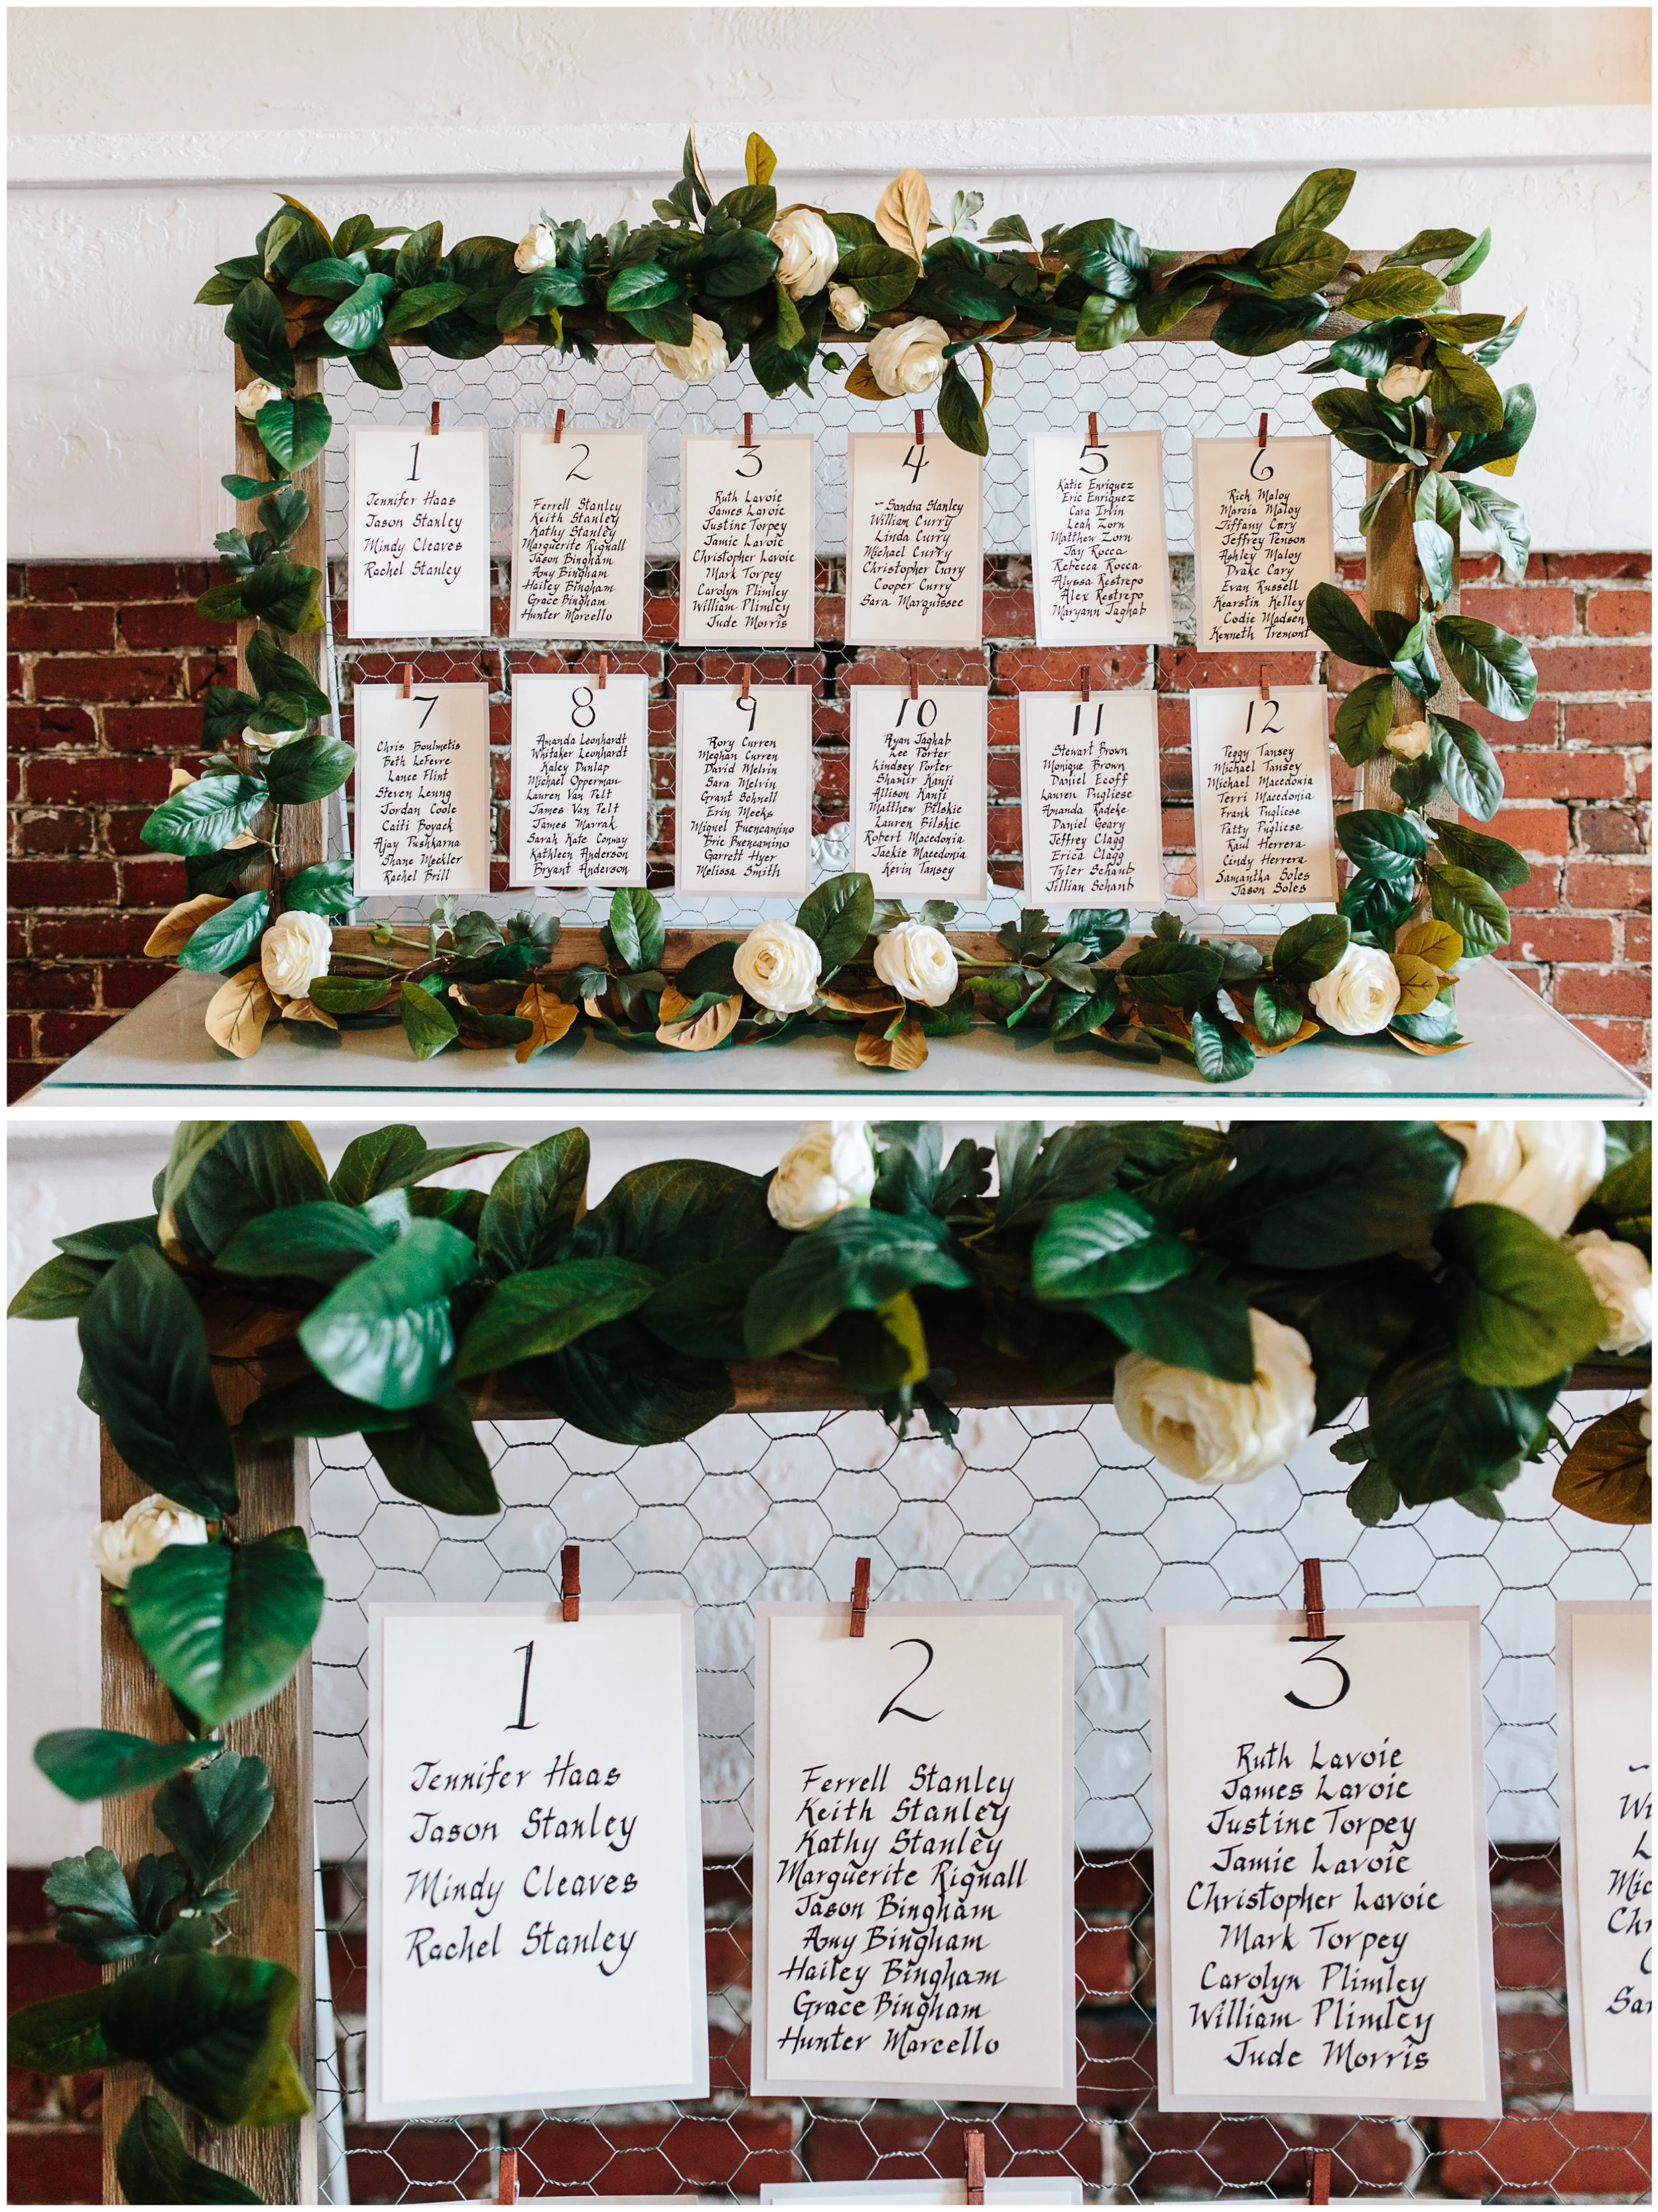 1
Jennifer Haas
Jason Stanley
Mindy Cleaves
Rachel Stanley
2
Ferrell Stanley
Keith Stanley
Kathy Stanley
Marguerite Rignall
Jason Bingham
Amy Bingham
Hailey Bingham
Grace Bingham
Hunter Marcello
3
Ruth Lavoie
James Lavoie
Justine Torpey
Jamie Lavoie
Christopher Lavoie
Mark Torpey
Carolyn Plimley
William Plimley
Jude Morris
4
~Sandra Stanley
William Curry
Linda Curry
Michael Curry
Christopher Curry
Cooper Curry
Sara Marquissee
5
Katie Enriquez
Eric Enriquez
Cara Irvin
Leah Zorn
Matthew Zorn
Jay Rocca
Rebecca Rocca
Alyssa Restrepo
Alex Restrepo
Maryann Jaghab
6
Rich Maloy
Marcia Maloy
Tiffany Cary
Jeffrey Penson
Ashley Maloy
Drake Cary
Evan Russell
Kearstin Kelley
Codie Madsen
Kenneth Tremont
7
Chris Boulmetis
Beth LeFevre
Lance Flint
Steven Leung
Jordan Coole
Caiti Boyack
Ajay Pushkarna
Shane Meckler
Rachel Brill
8
Amanda Leonhardt
Whitaker Leonhardt
Kaley Dunlap
Michael Opperman
Lauren Van Pelt
James Van Pelt
James Marrak
Sarah Kate Conway
Kathleen Anderson
Bryant Anderson
9
Rory Curren
Meghan Curren
David Melvin
Sara Melvin
Grant Schnell
Erin Meeks
Miguel Buencamino
Brie Buencamino
Garrett Hyer
Melissa Smith
10
Ryan Jaghab
Lee Porter
Lindsey Porter
Shamir Kanji
Allison Kanji
Matthew Bilskie
Lauren Bilskie
Robert Macedonia
Jackie Macedonia
Kevin Tansey
11
Stewart Brown
Monique Brown
Daniel Ecoff
Lauren Pugliese
Amanda Radeke
Daniel Geary
Jeffrey Clagg
Erica Clagg
Tyler Schaub
Jillian Schaub
12
Peggy Tansey
Michael Tansey
Michael Macedonia
Terri Macedonia
Frank Pugliese
Patty Pugliese
Raul Herrera
Cindy Herrera
Samantha Soles
Jason Soles
1
Jennifer Haas
Jason Stanley
Mindy Cleaves
Rachel Stanley
2
Ferrell Stanley
Keith Stanley
Kathy Stanley
Marguerite Rignall
Jason Bingham
Amy Bingham
Hailey Bingham
Grace Bingham
Hunter Marcello
3
Ruth Lavoie
James Lavoie
Justine Torpey
Jamie Lavoie
Christopher Lavoie
Mark Torpey
Carolyn Plimley
William Plimley
Jude Morris